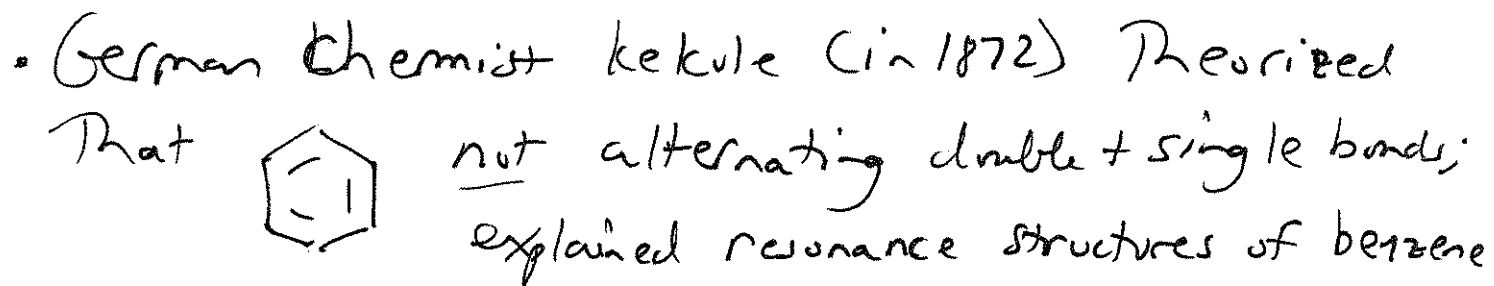 • German Chemist Kekule (in 1872) Theorized
That not alternating double + single bonds;
explained resonance structures of benzene